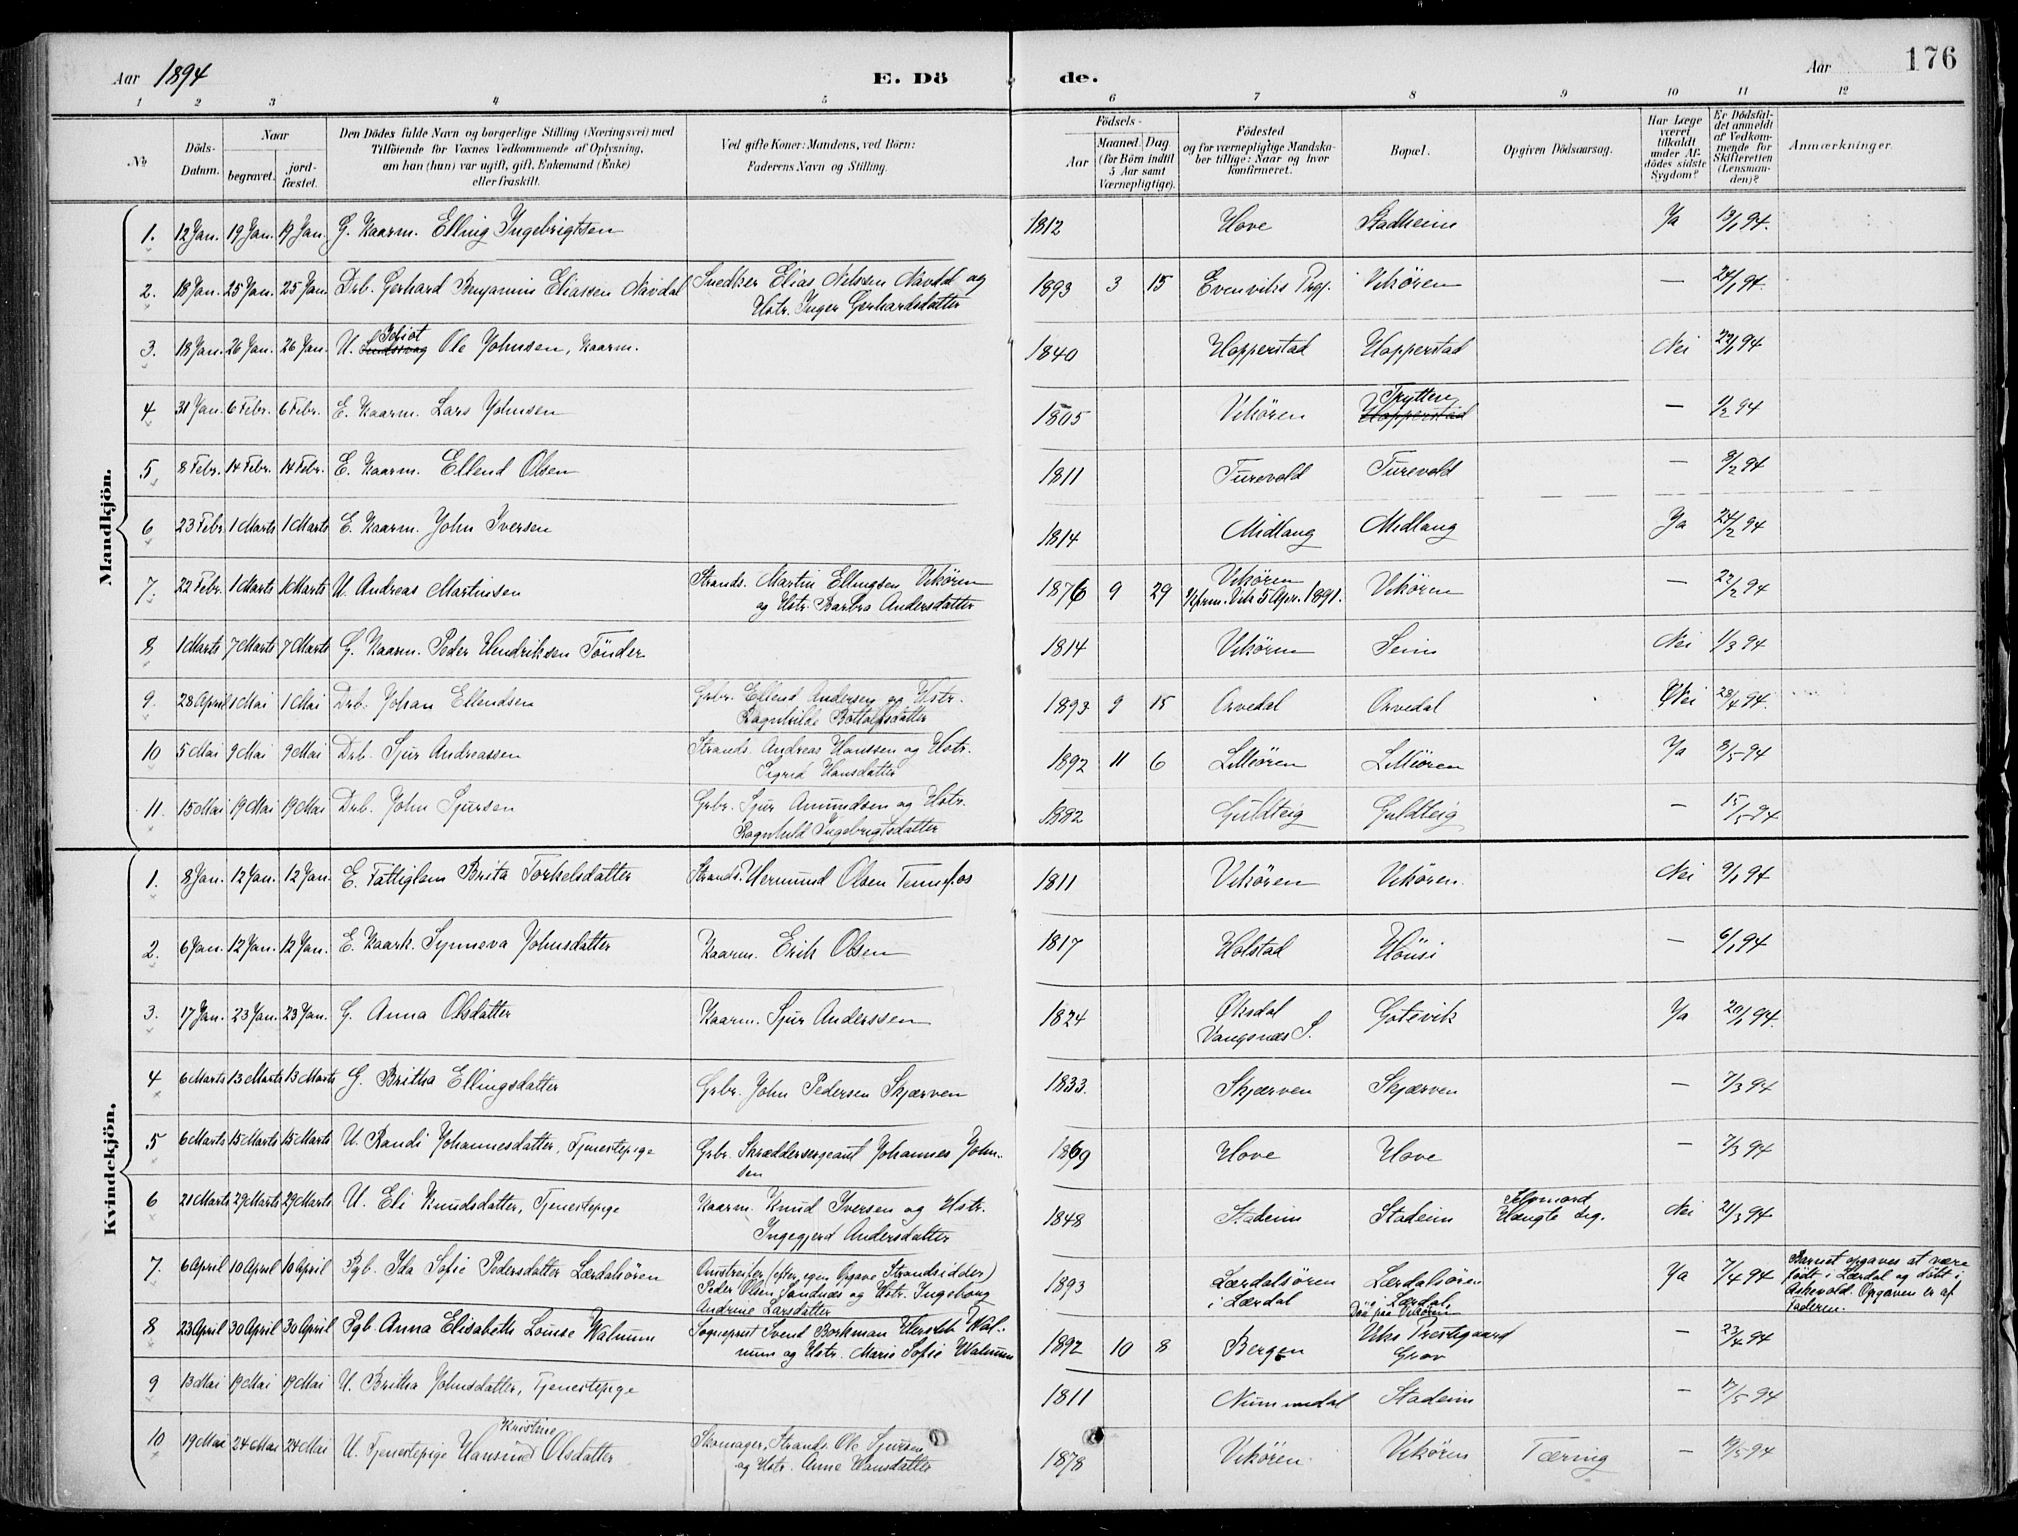 Aar 1894
E. Döde.
Aar 176
1 2 3 4 5 6 7 8 9 10 11 12
No
Döds-Datum.
Naar
begravet.
jordfæstet.
Den Dödes fulde Navn og borgerlige Stilling (Næringsvei) med
Tilföiende for Voxnes Vedkommende af Oplysning,
om han (hun) var ugift, gift, Enkemand (Enke)
eller fraskilt.
Ved gifte Koner: Mandens, ved Börn:
Faderens Navn og Stilling.
Födsels-
Aar
Maaned. Dag.
(for Börn indtil
5 Aar samt
Værnepligtige).
Födested
og for værnepligtige Mandskaber tillige: Naar og hvor
konfirmeret.
Bopæl.
Opgiven Dödsaarsag.
Har Læge
været
tilkaldt
under Afdödes sidste
Sygdom?
Er Dödsfaldet anmeldt
af Vedkommende for
Skifteretten
(Lensmanden)?
Anmærkninger.
Mandkjön.
1. 12 Jan. 19 Jan. 19 Jan. G. Kaarm. Elling Ingebrigtsen 1812 Hove Stadheim Ja 13/1 94.
2. 18 Jan. 25 Jan. 25 Jan. Drb. Gerhard Benjamin Eliassen Nävdal Snedker Elias Nilssen Nävdal og
Hstr. Inger Gerhardsdatter 1893 3 15 Evenviks Prgj. Vikören — 24/1 94.
3. 18 Jan. 26 Jan. 26 Jan. U. Idiot Ole Johnsen, Kaarm. 1840 Hopperstad Hopperstad Nei 22/1 94
4. 31 Jan. 6 Febr. 6 Febr. E. Kaarm. Lars Johnsen 1805 Vikören Tryttene Hopperstad — 2/2 94
5 8 Febr. 14 Febr. 14 Febr. E. Kaarm. Ellend Olsen 1811 Turevold Turevold — 9/2 94
6 23 Febr. 1 Marts 1 Marts E. Kaarm. John Iversen 1814 Midlang Midlang Ja 24/2 94
7. 22 Febr. 1 Marts 1 Marts U. Andreas Martinsen Strands. Martin Ellingsen Vikören
og Hstr. Barbro Andersdatter 1876 9 29 Vikören
Kfrm. Vik 5 Apr. 1891. Vikören — 22/2 94
8 1 Marts 7 Marts 7 Marts G. Kaarm. Peder Hendriksen Tönder 1814 Vikören Seim Nei 1/3 94
9 28 April 1 Mai 1 Mai Drb. Johan Ellendsen Grbr. Ellend Andersen og Hstr.
Ragnhilde Bottolfsdatter 1893 9 15 Orvedal Orvedal Nei 28/4 94.
10 5 Mai 9 Mai 9 Mai Drb. Sjur Andreassen Strands. Andreas Hanssen og Hstr.
Sigrid Hansdatter 1892 11 6 Lilleören Lilleören Ja 8/5 94
11. 15 Mai 19 Mai 19 Mai Drb. John Sjursen Grbr. Sjur Amundsen og Hstr.
Ragnhild Ingebrigtsdatter 1882 Guldteig Guldteig — 15/5 94
Kvindekjön.
1. 8 Jan. 12 Jan. 12 Jan. E. Fattiglem Brita Torkelsdatter Strands. Hermund Olsen Tennefos 1811 Vikören Vikören. Nei 9/1 94
2. 6 Jan. 12 Jan. 12 Jan. E. Kaark. Synneva Johnsdatter Kaarm. Erik Olsen 1817 Holstad Hönsi — 6/1 94
3. 17 Jan. 23 Jan. 23 Jan. G. Anna Olsdatter Kaarm. Sjur Anderssen 1824 Öksdal
Vangsnæs S. Gotevik Ja 20/1 94.
4 6 Marts 13 Marts 13 Marts G. Britha Ellingsdatter Grbr. John Pedersen Skjærven 1833. Skjærven Skjærven — 7/3 94
5 6 Marts 15 Marts 15 Marts U. Randi Johannesdatter, Tjenestepige Grbr. Skræddersergeant Johannes Johnsen 1869 Hove Hove — 7/3 94
6 21 Marts 29 Marts 29 Marts U. Eli Knudsdatter, Tjenestepige Kaarm. Knud Iversen og Hstr.
Ingegjerd Andersdatter 1848 Stadeim Stadeim Selvmord
Hængte sig. Nei 21/3 94
7. 6 April 10 April 10 April Pgb. Ida Sofie Pedersdatter Lærdalsören Omstreifer (efter egen Opgave Strandsidder)
Peder Olsen Sandnæs og Hstr. Ingeborg
Andrine Larsdatter 1893 Lærdalsören
i Lærdal Lærdalsören
i Lærdal.
Död paa Vikören Ja 7/4 94 Barnet opgaves at være
født i Lærdal og døbt i
Askevold. Opgaven er af
Faderen.
8 23 April 30 April 30 April Pgb. Anna Elisabeth Louise Walnum Sogneprest Svend Borkman Hersleb Walnum og Hstr. Marie Sofie Walnum 1892 10 8 Bergen Viks Prestegaard
Grov — 23/4 94
9 13 Mai 19 Mai 19 Mai U. Britha Johnsdatter, Tjenestepige 1811 Nummedal Stadeim — 17/5 94
10 19 Mai 24 Mai 24 Mai U. Tjenestepige Hansine Kristine Olsdatter Skomager, Strands. Ole Sjursen
og Hstr. Anne Hansdatter 1878 Vikören. Vikören Tæring — 19/5 94